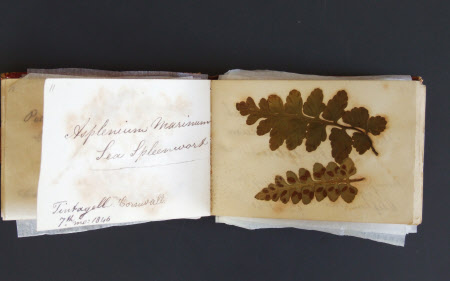 Asplenium Marinum
Sea Spleenwort
Tintagell Cornwall
7th mo: 1846